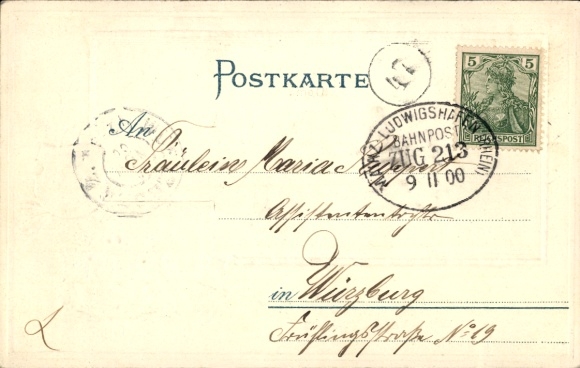 POSTKARTE
5
REICHSPOST
MAINZ LUDWIGSHAFEN (RHEIN)
BAHNPOST
ZUG 213
9 11 00
An
Fräulein Maria
Assistententochter
in Würzburg
Frühlingsstraße No 19